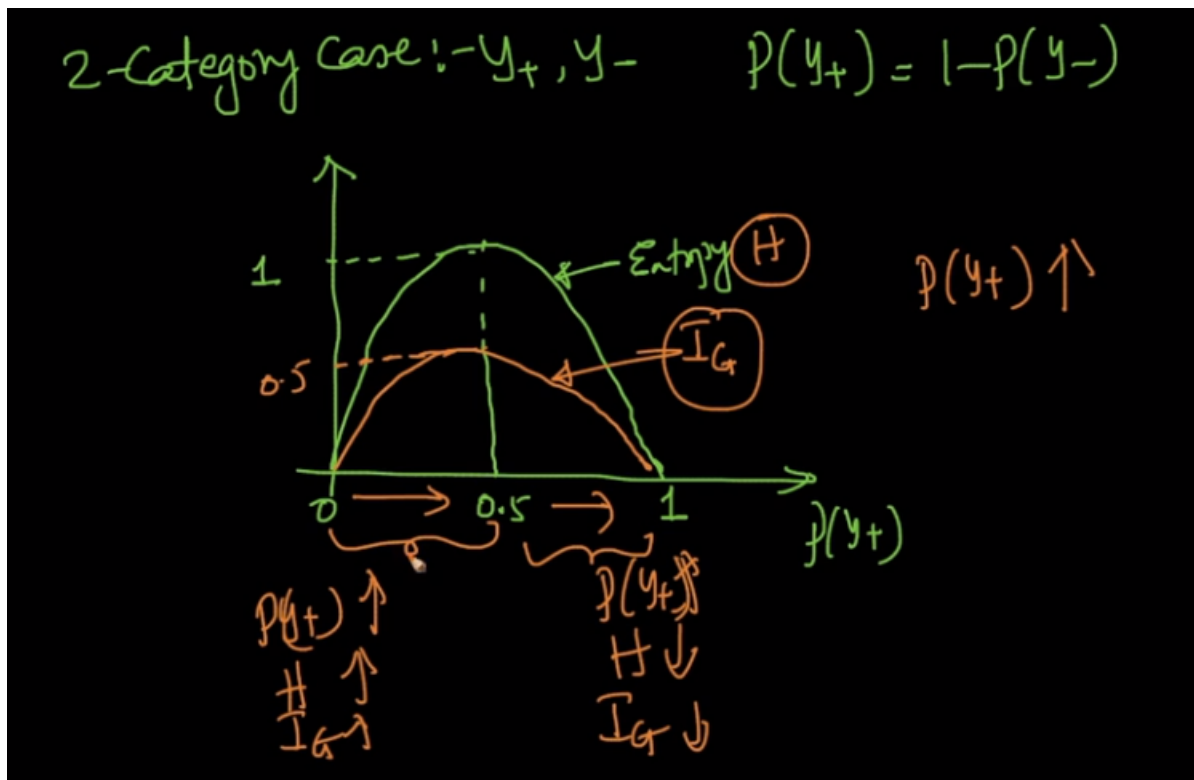 2-Category Case:- y+, y- P(y+) = 1-P(y-)
1
Entropy H
P(y+) ↑
0.5
IG
0 → 0.5 → 1
P(y+)
P(y+) ↑
H ↑
IG ↑
P(y+) ↑
H ↓
IG ↓